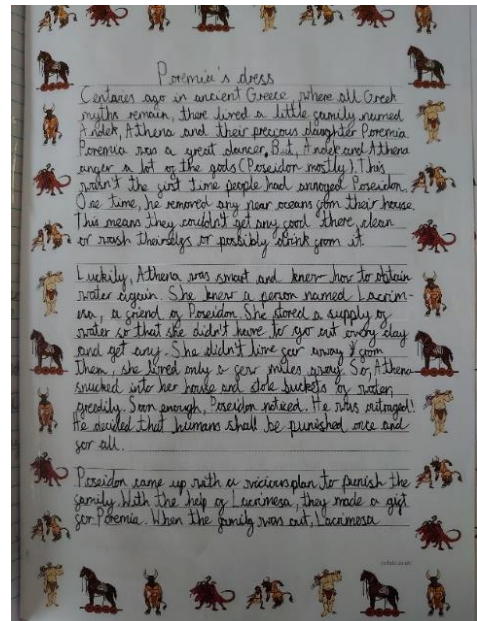 Poremia's dress
Centares ago in ancient Greece where all Greek
myths remain, there lived a little family named
Andek, Athena and their precious daughter Poremia.
Poremia was a great dancer. But, Andek and Athena
anger a lot of the gods (Poseidon mostly). This
wasn't the first time people had annoyed Poseidon.
One time, he removed any near oceans from their house.
This means they couldn't get any food there, clean
or wash theirselfs or possibly drink from it.
Luckily, Athena was smart and knew how to obtain
water again. She knew a person named Lacrim-
esa, a friend of Poseidon. She stored a supply of
water so that she didn't have to go out every day
and get any. She didn't live far away from
them, she lived only a few miles away. So, Athena
snucked into her house and stole buckets of water,
greedily. Soon enough, Poseidon noticed. He was outraged!
He decided that humans shall be punished once and
for all.
Poseidon came up with a vicious plan to punish the
family. With the help of Lacrimesa, they made a gift
for Poremia. When the family was out, Lacrimesa